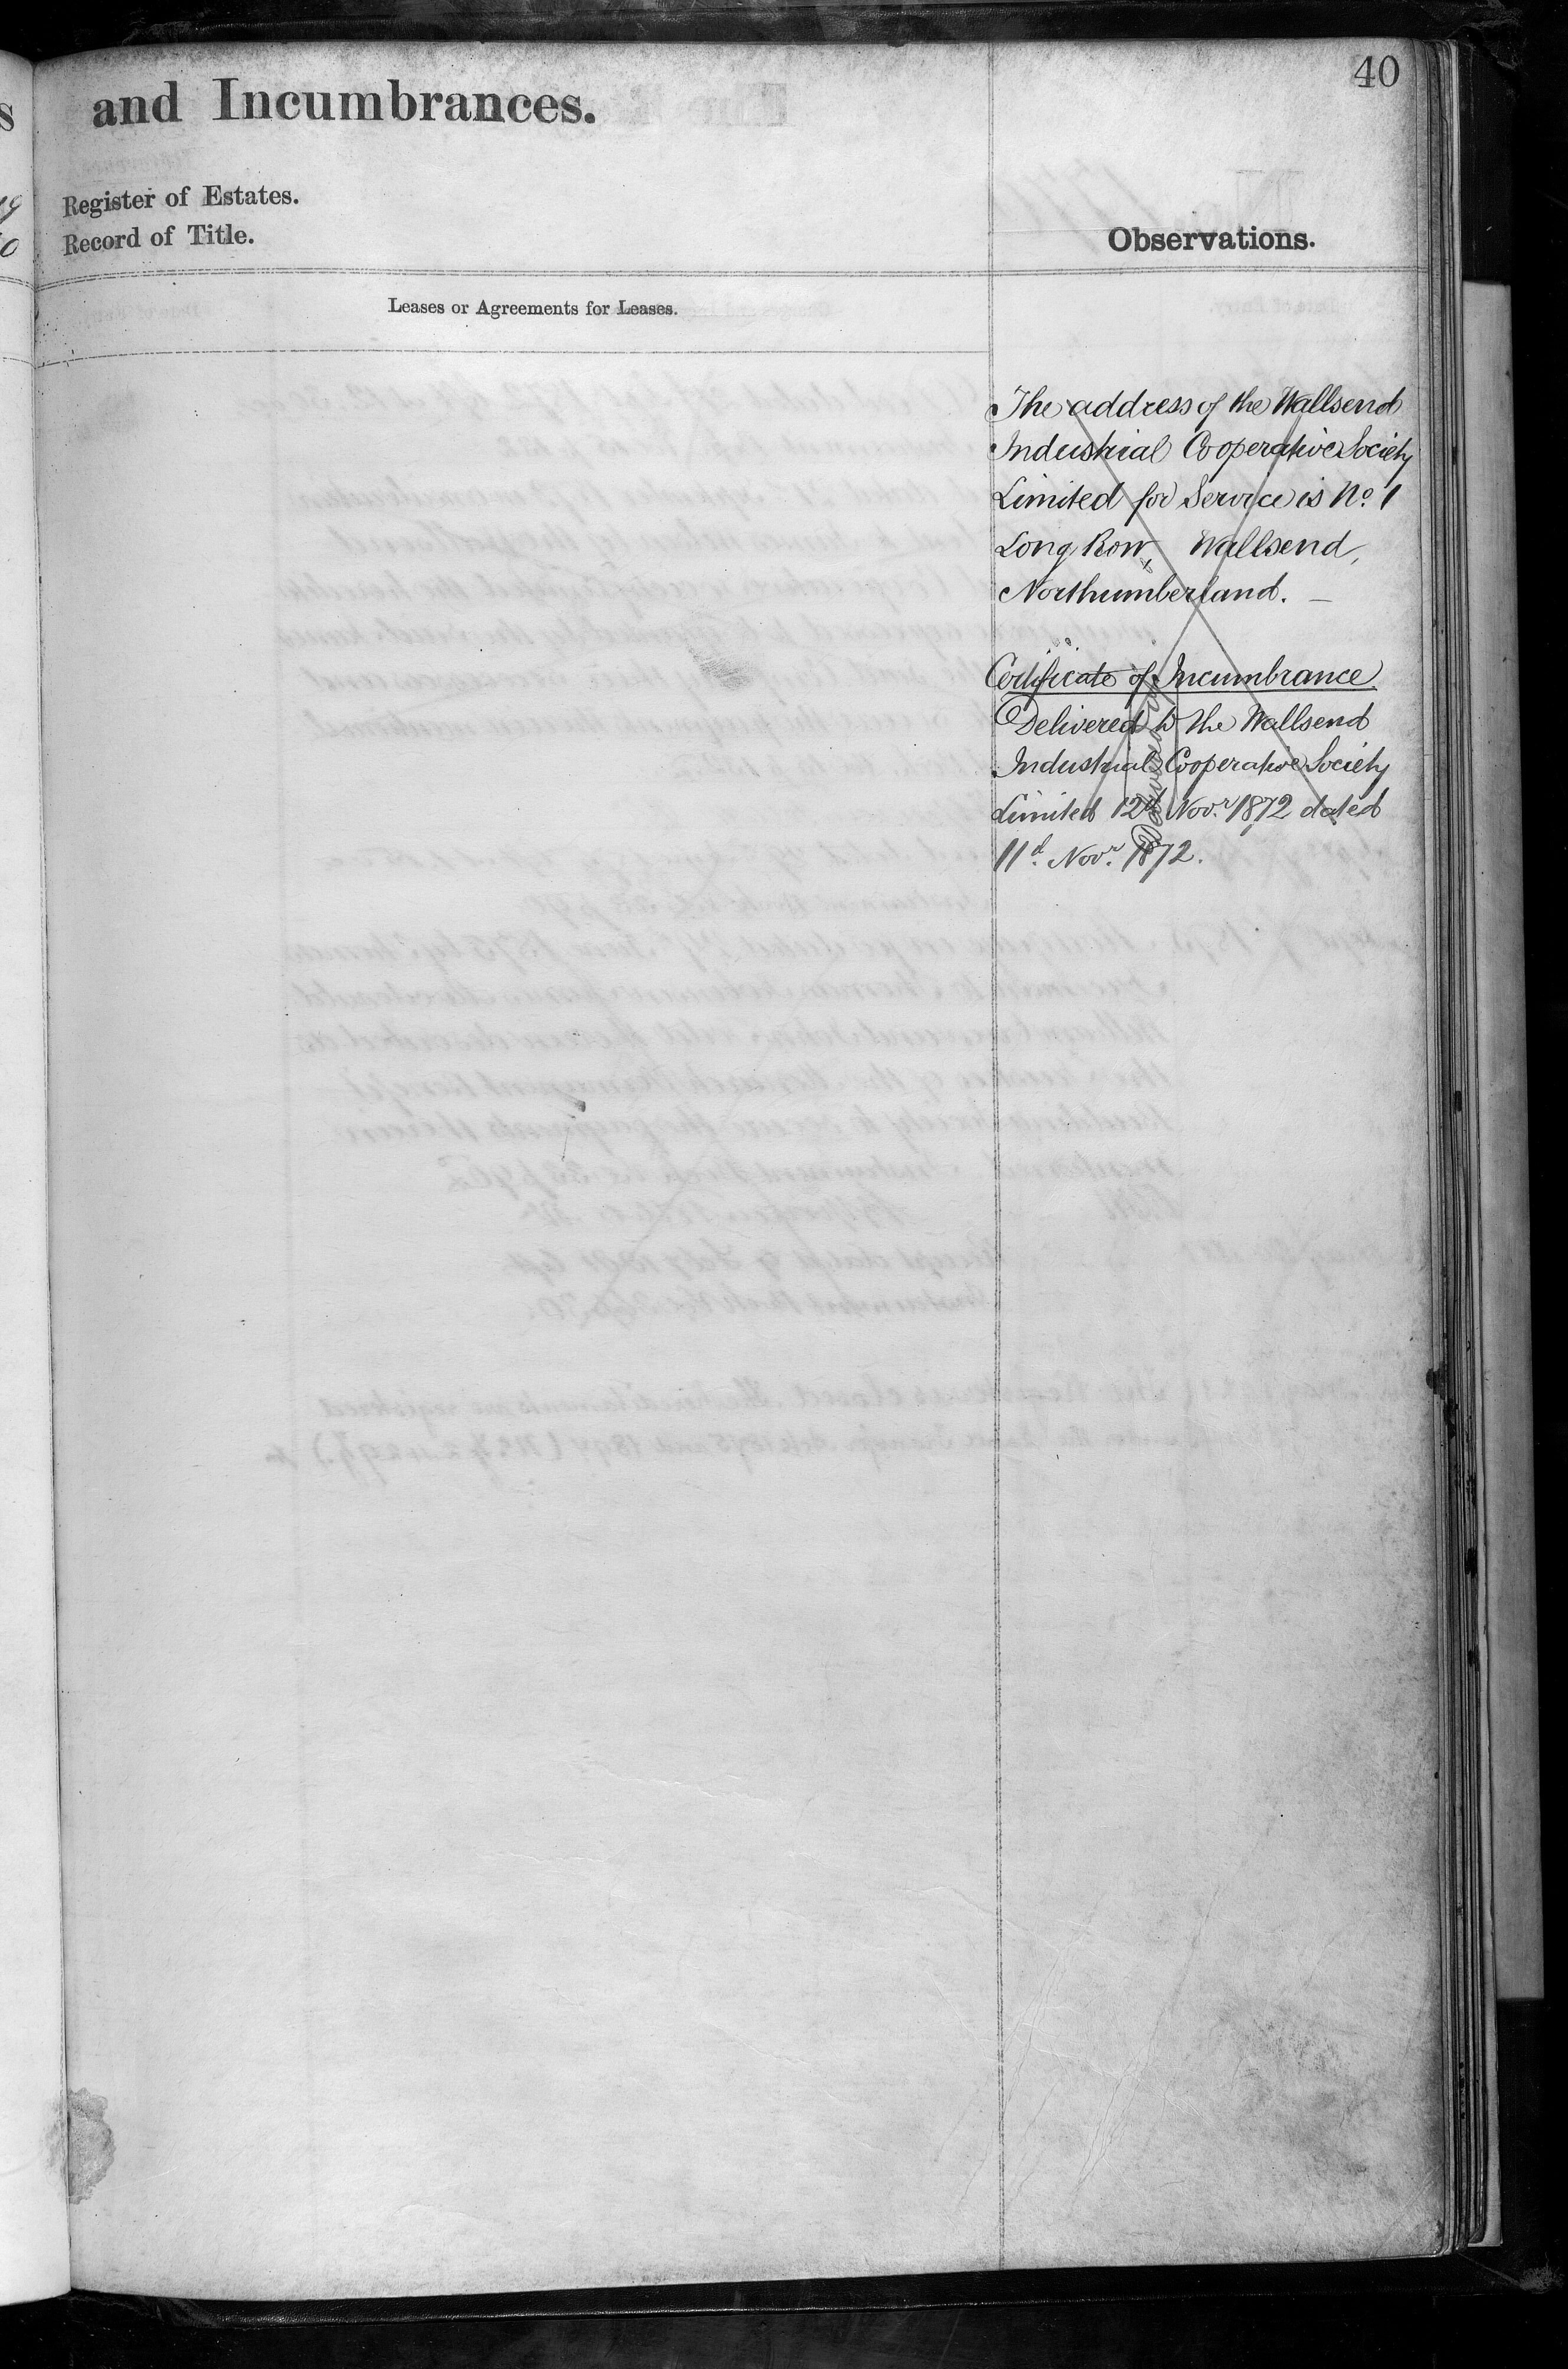 40
and Incumbrances.
Register of Estates.
Record of Title.
Observations.
Leases or Agreements for Leases.
The address of the Wallsend
Industrial Cooperative Society
Limited for Service is No. 1
Long Row, Wallsend,
Northumberland. —
Certificate of Incumbrance
Delivered to the Wallsend
Industrial Cooperative Society
Limited 12th Novr. 1872 dated
11th Novr. 1872.